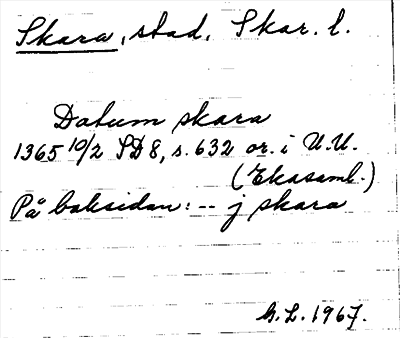 Skara, stad. Skar. l.
Datum skara
1365 10/2 SD 8, s. 632 or. i U.U.
(Ekasaml.)
På baksidan: -- j skara
G. L. 1967.